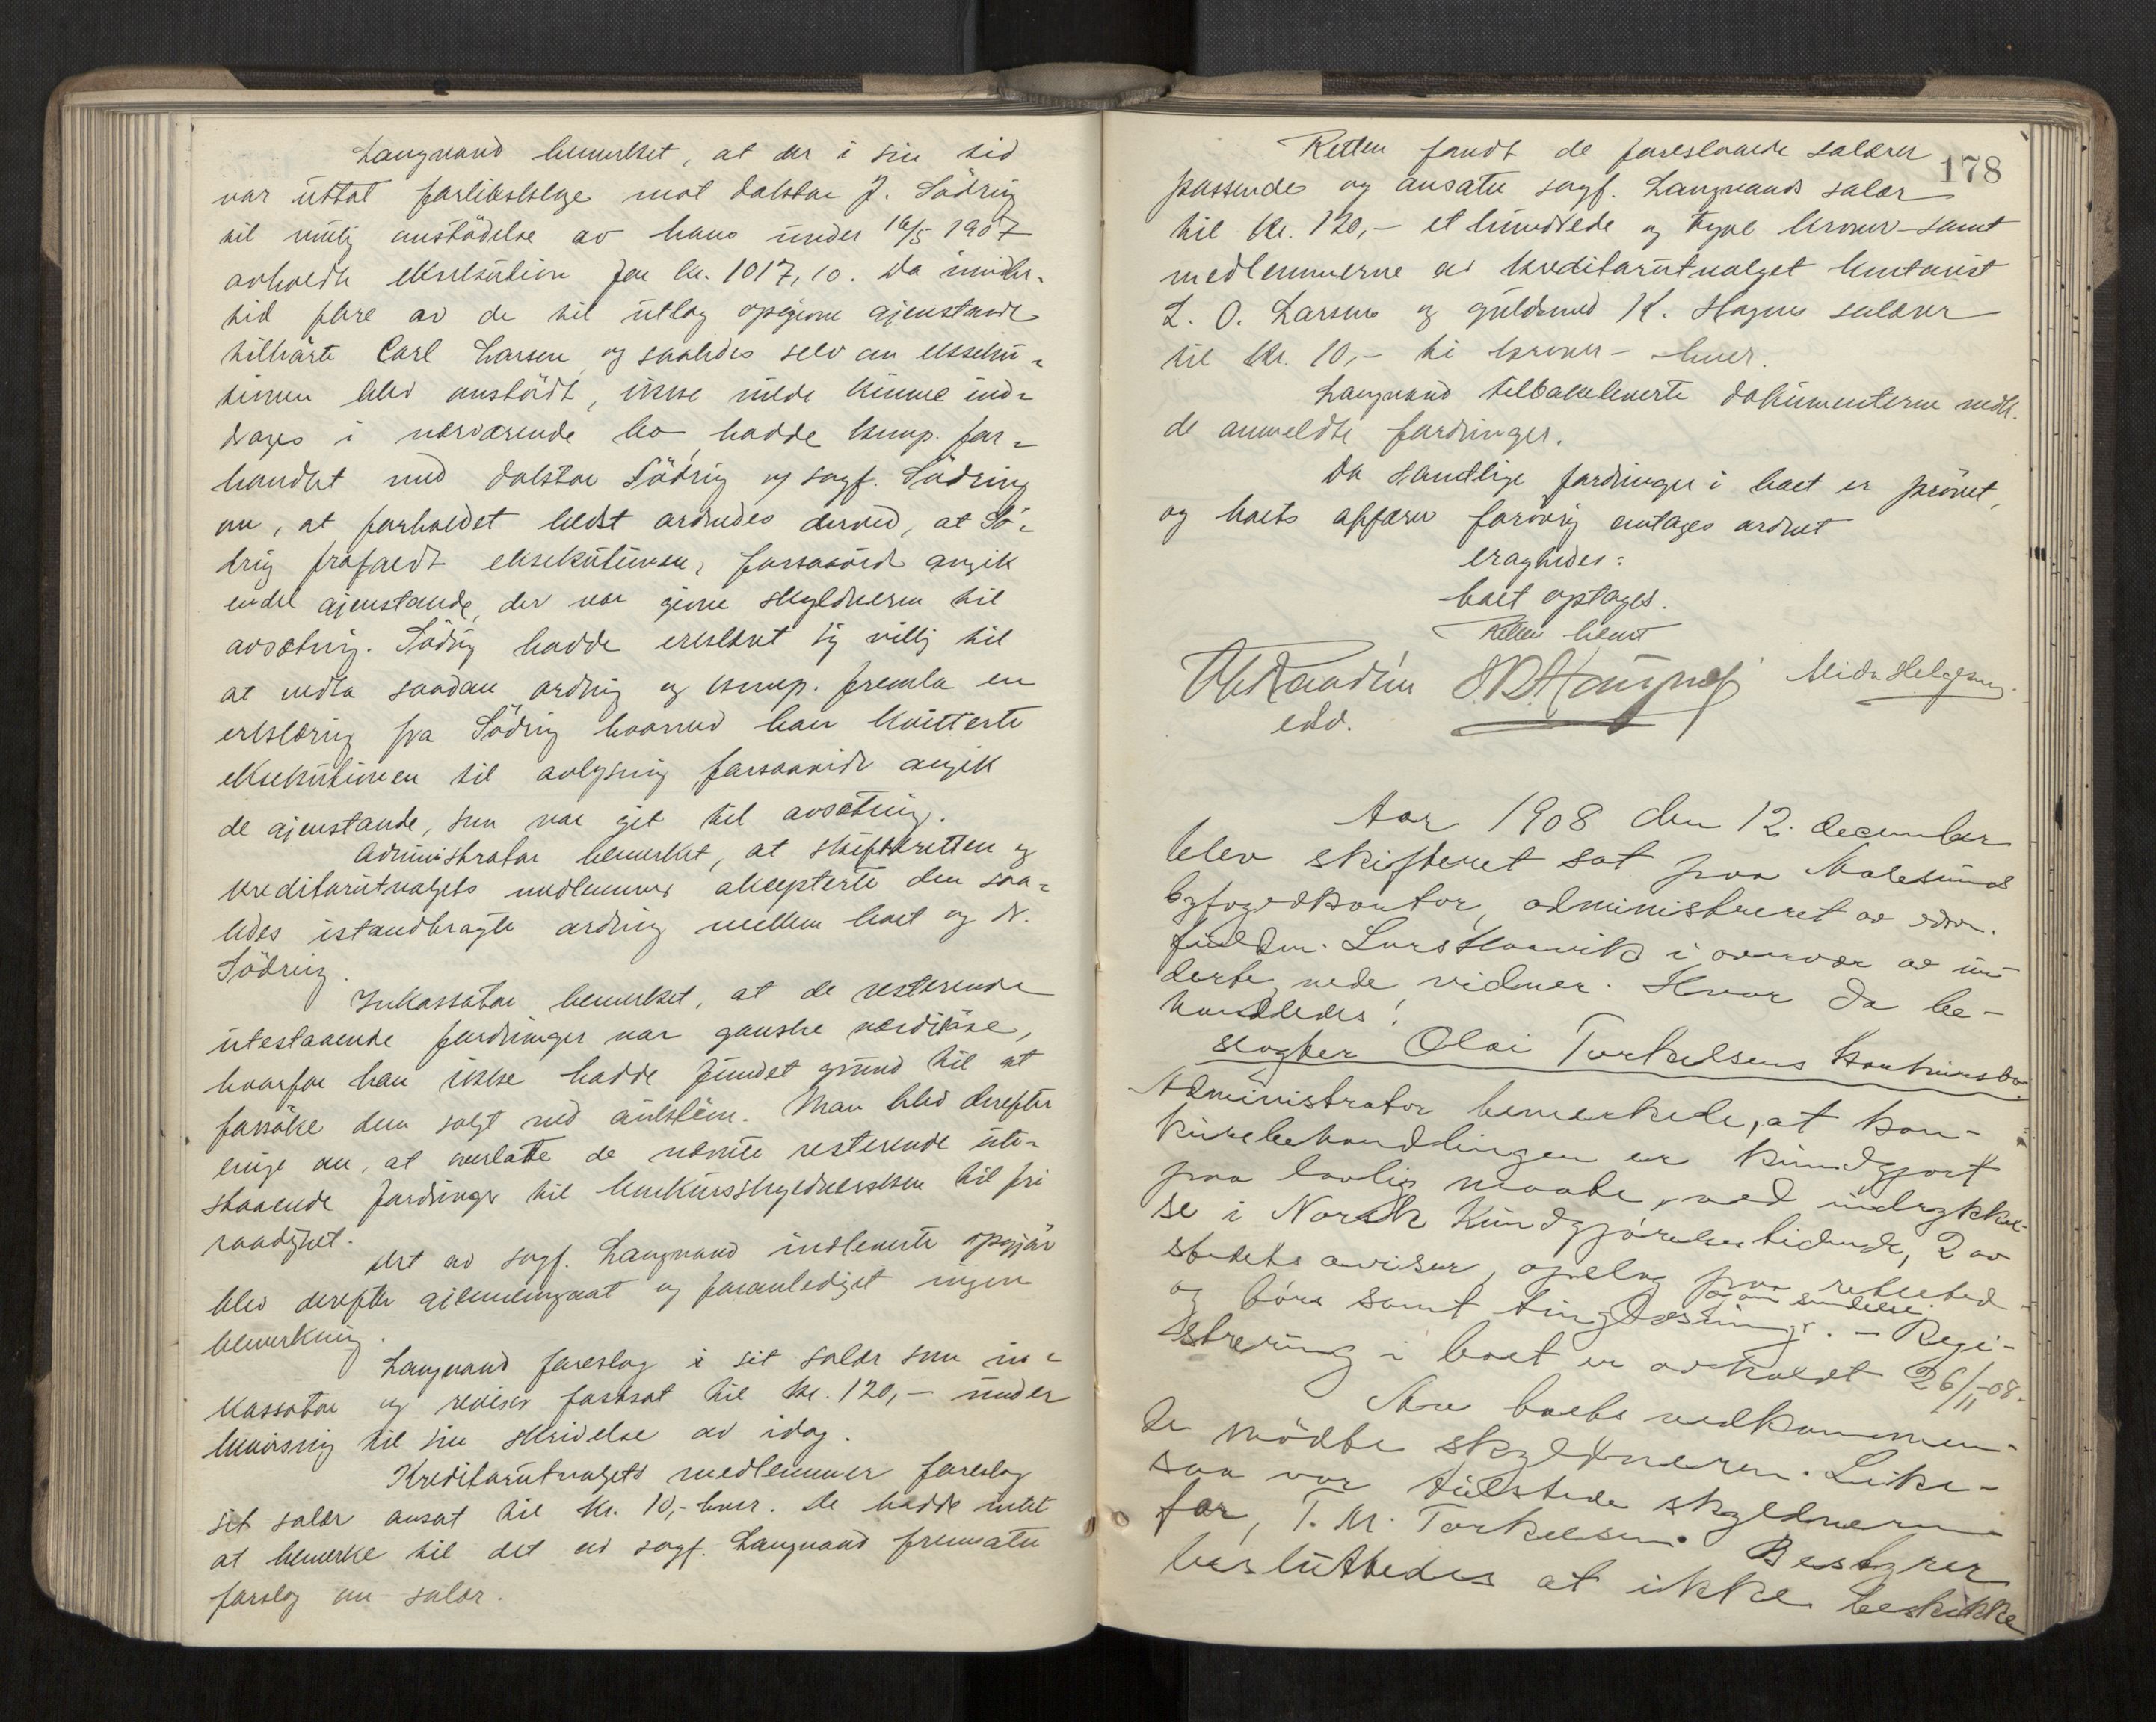 Langvand bemerket, at der i sin tid
var uttat forliksklage mot doktor J. Södring
til mulig omstödelse av hans under 16/5 1907
avholdte eksekution for kr. 1017,10. Da imidler-
tid flere av de til utlæg opgivne gjenstande
tilhörte Carl Larsen og saaledes selv om ekseku-
tionen blev omstödt, ikke vilde kunne ind-
drages i nærværende bo, hadde komp. for-
handlet med doktor Södring og sagf. Södring
om, at forholdet bedst ordnedes derved, at Sö-
dring frafaldt eksekutionen, forsaavidt angik
endel gjenstande, der var givne skyldneren til
avsætning. Södring hadde erklært sig villig til
at vedta saadan ordning og komp. fremla en
erklæring fra Södring hvorved han kvitterte
eksekutionen til avlysning forsaavidt angik
de gjenstande, som var git til avsætning.
Administrator bemerket, at skifteretten og
kreditorutvalgets medlemmer aksepterte den saa-
ledes istandbragte ordning mellem boet og dr.
Södring.
Inkassator bemerket, at de resterende
utestaaende fordringer var ganske værdiløse,
hvorfor han ikke hadde fundet grund til at
forsöke dem solgt ved auktion. Man blev derefter
enige om, at overlatte de nævnte resterende ute-
staaende fordringer til konkursskyldnersken til fri
raadighet.
Det av sagf. Langvand indleverte opgjör
blev derefter gjennemgaat og foranlediget ingen
bemerkning.
Langvand foreslog sit salær som in-
kassator og revisor fastsat til kr. 120,- under
henvisning til sin skrivelse av idag.
Kreditorutvalgets medlemmer foreslog
sit salær ansat til kr. 10,- hver. De hadde intet
at bemerke til det av sagf. Langvand fremsatte
forslag om salær.
178
Retten fandt de foreslaaede salærer
passende og ansatte sagf. Langvands salær
til kr. 120,- et hundrede og tyve kroner - samt
medlemmerne av kreditorutvalget kontorist
L. O. Larsens og guldsmed K. Hagens salærer
til kr. 10,- ti kroner - hver.
Langvand tilbakeleverte dokumenterne vedk.
de anmeldte fordringer.
Da samtlige fordringer i boet er prövet,
og boets affærer forövrig antages ordnet
eragtedes:
boet optages.
Retten hævet
edd.
Aar 1908 den 12. december
blev skifteret sat paa Aalesunds
byfogedkontor, administreret av edsv.
fuldm. Lars Haavik i overvær av un-
dertegnede vidner. Hvor da be-
handledes:
slagter Olai Torkelsens konkursbo
Administrator bemerkede, at kon-
kursbehandlingen er kundgjort
paa lovlig maate, ved indrykkel-
se i Norsk Kundgjörelsestidende, 2 av
stedets aviser, opslag paa retssted
og börs samt tinglæsning. og omsendelse. - Regi-
strering i boet er avholdt 26/11-08.
Av boets vedkommen-
de mödte skyldneren. Like-
saa var tilstede skyldnerens
far, T. M. Torkelsen. Bestyrer
besluttedes at ikke beskikke